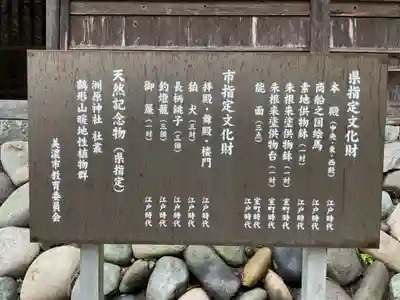 県指定文化財
本殿（中央・東・西殿） 江戸時代
雨船之図絵馬 江戸時代
素地供物鉢（一対） 江戸時代
朱根来塗供物鉢（一対） 室町時代
朱根来塗供物台（一対） 室町時代
能面（三点） 江戸時代
市指定文化財
拝殿・舞殿・楼門 江戸時代
狛犬（三対） 江戸時代
長柄銚子（三個） 江戸時代
釣燈籠（三個） 江戸時代
御簾（一対） 江戸時代
天然記念物（県指定）
洲原神社 社叢
鶴形山暖地性植物群
美濃市教育委員会